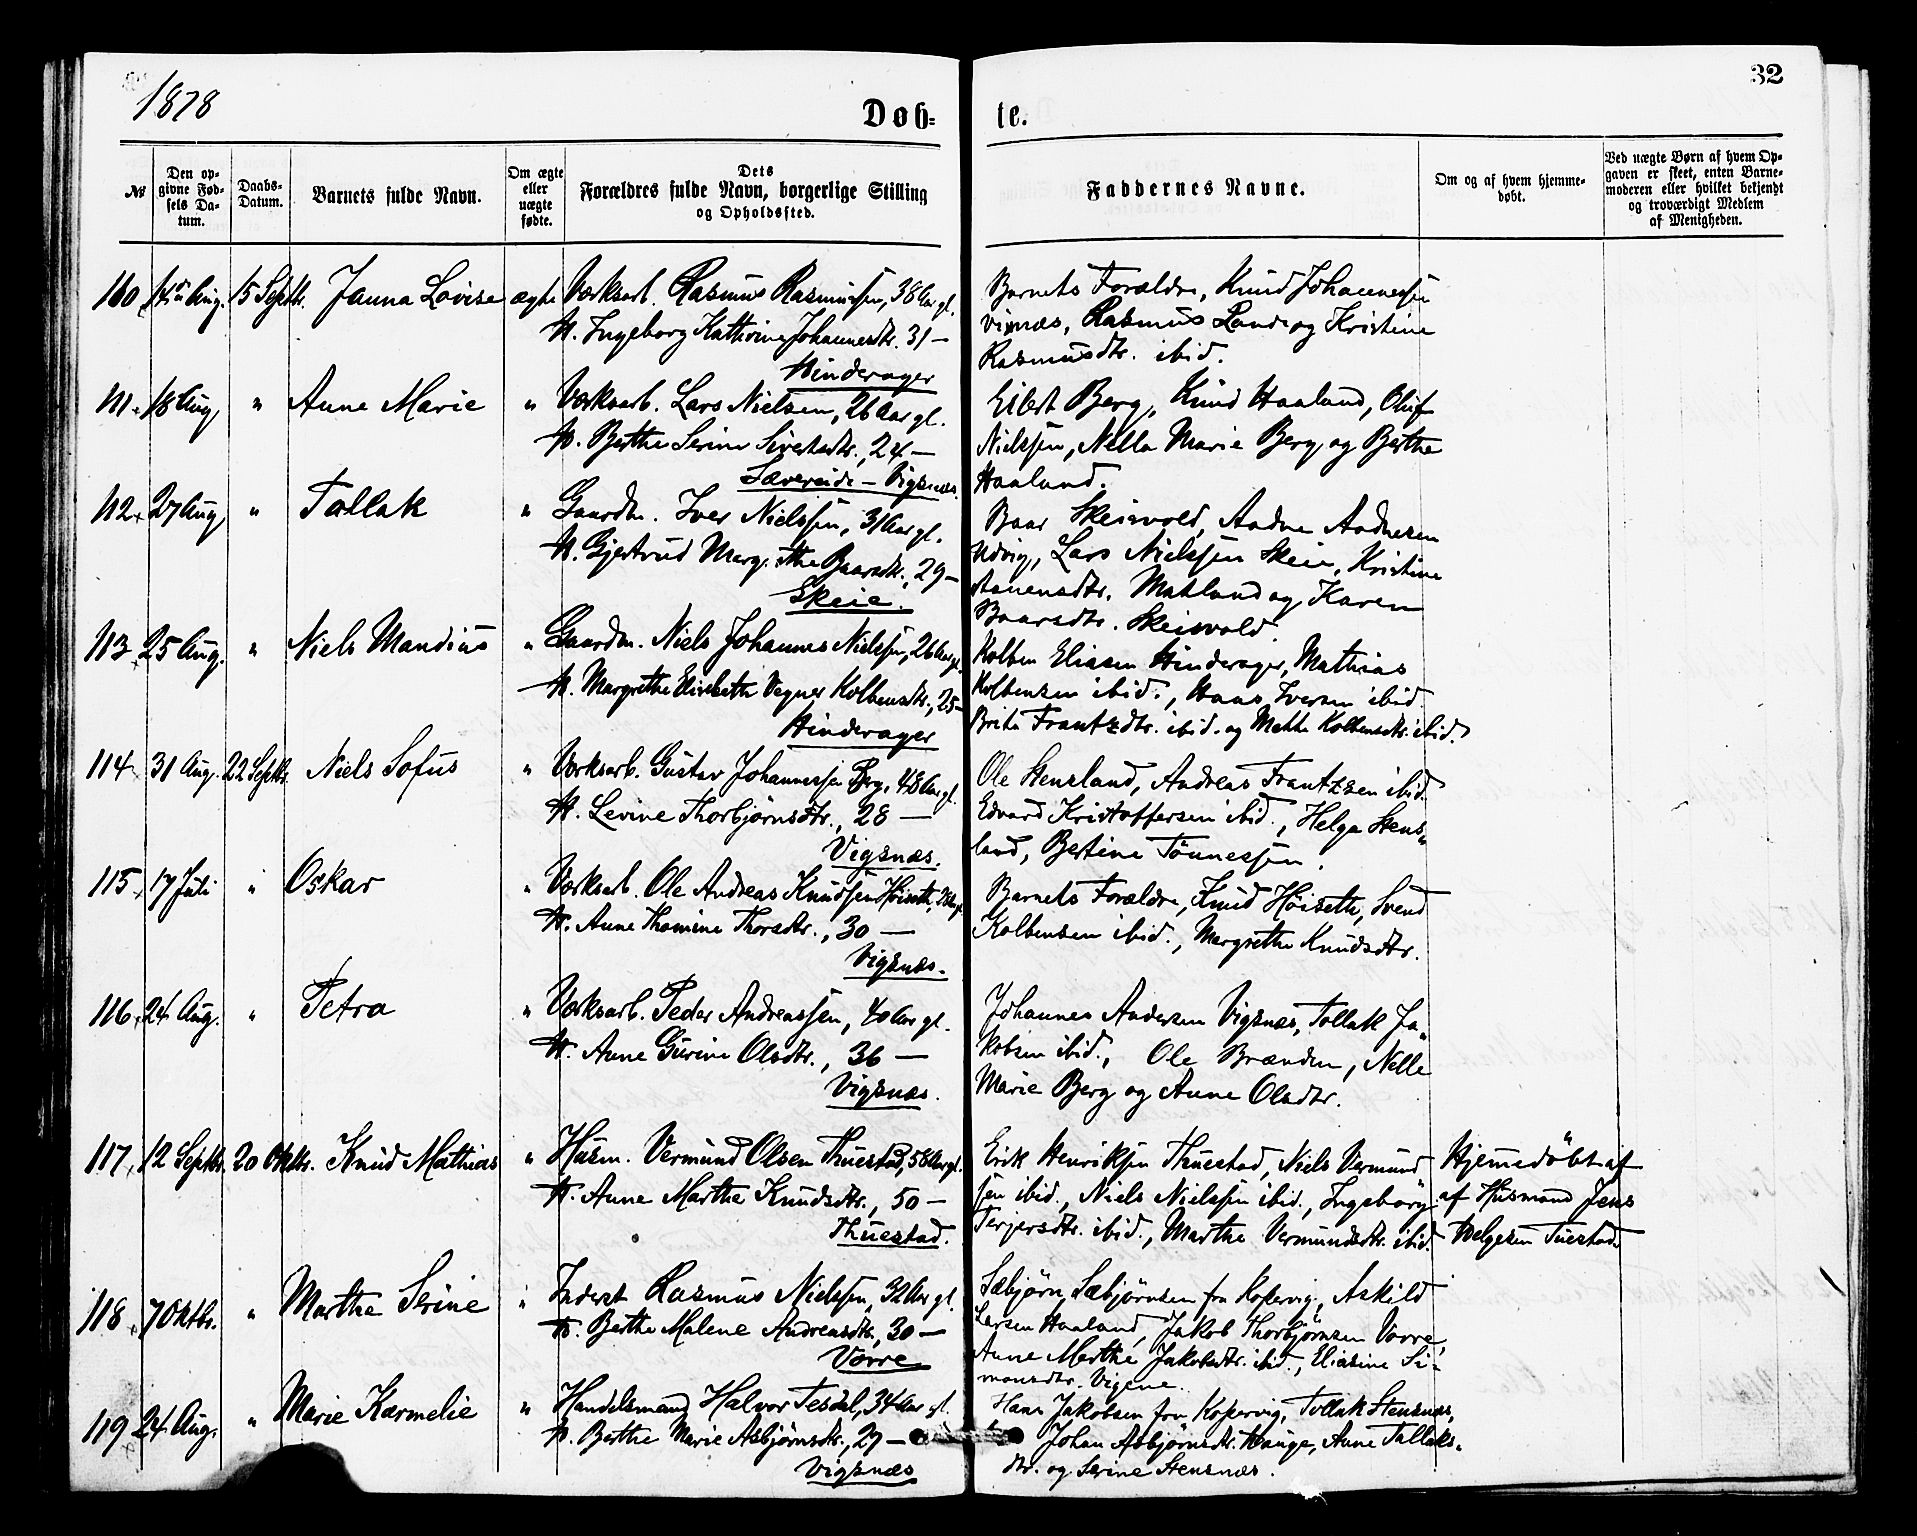 1878
32
Døb-
te.
№
Den opgivne Fødsels Datum.
Daabs-Datum.
Barnets fulde Navn.
Om ægte eller uægte fødte.
Dets Forældres fulde Navn, borgerlige Stilling og Opholdssted.
Faddernes Navne.
Om og af hvem hjemmedøbt.
Ved uægte Børn af hvem Opgaven er skeet, enten Barnemoderen eller hvilket bekjendt og troværdigt Medlem af Menigheden.
110 Aug. 15 Septbr. Janna Lovise ægte Værksarb. Rasmus Rasmussen, 38 Aar gl.
H. Ingeborg Kathrine Johannesdtr. 31 —
Hinderager
Barnets Forældre, Knud Johannessen
Visnæs, Rasmus Lande og Kristine
Rasmusdtr. ibid.
111 18 Aug. " Anne Marie " Værksarb. Lars Nielsen, 26 Aar gl.
H. Berthe Serine Sivertsdtr., 24 —
Sævereide – Vigsnæs.
Eilert Berg, Knud Haaland, Oluf
Nielssen, Nella Marie Berg og Berthe
Haaland.
112 27 Aug. " Tallak " Gaardm. Iver Nielssen, 31 Aar gl.
H. Gjertrud Marg.the Baarsdtr., 29 —
Skeie.
Baar Skeisvold, Aadne Aadnesen
Udvig, Lars Nielssen Skeie, Kristine
Matland og Karen
Baarsdtr. Skeisvold.
113 25 Aug. " Niels Mandius " Gaardm. Niels Johannes Nielssen, 26 Aar gl.
H. Margrethe Elisabeth Vegner Kolbensdtr., 25 —
Hinderager
Kolben Eliasen Hinderager, Mathias
Kolbensen ibid., Hans Iversen ibid.
Brita Frantzdtr. ibid. og Mekka Kolbensdtr. ibid.
114 31 Aug. 22 Septbr. Niels Sofus " Værksarb. Gustav Johannessen Berg, 48 Aar gl.
H. Levine Thorbjørnsdtr., 28 —
Vigsnæs.
Ole Stensland, Andreas Frantzsen ibid.
Edvard Kristoffersen ibid., Helga Stens-
land, Bertine Tønnessen.
115 17 Juli " Oskar " Værksarb. Ole Andreas Knudsen Høiseth,
H. Anne Thomine Thorsdtr., 30 —
Vigsnæs.
Barnets Forældre, Knud Høiseth, Svend
Kolbensen ibid., Margrethe Knudsdtr.
116 24 Aug. " Petra " Værksarb. Peder Andreassen, 40 Aar gl.
H. Anne Gurine Olsdtr., 36 —
Vigsnæs.
Johannes Andersen Vigsnæs, Tollak Ja-
kobsen ibid., Ole Brænden, Nelle
Marie Berg og Anne Olsdtr.
117 12 Septbr. 20 Oktbr. Knud Mathias " Husm. Vermund Olsen Thuestad, 58 Aar gl.
H. Anne Marthe Knudsdtr., 50 —
Thuestad.
Erik Henriksen Thuestad, Niels Vermund
sen ibid., Niels Nielssen ibid., Ingeborg
Terjersdtr. ibid., Marthe Vermundsdtr. ibid.
Hjemmedøbt af
af Husmand Jens
Helgesen Tuestad.
118 7 Oktbr. " Marthe Serine " Inderst Rasmus Nielssen, 32 Aar gl.
H. Berthe Malene Andreasdtr., 30 —
Vorre
Sæbjørn Sæbjørnsen fra Kopervig, Askild
Larsen Haaland, Jakob Thorbjørnsen Vorre,
Anne Marthe Jakobsdtr. ibid., Eliasine Si-
monsdtr. Vigene.
119 24 Aug. " Marie Karmelie " Handelsmand Halvor Tesdal, 34 Aar gl.
H. Berthe Marie Asbjørnsdtr., 27 —
Vigsnæs
Hans Jakobsen fra Kopervig, Tollak Stensnæs,
Johan Asbjørnsdtr. Hauge, Anne Tallaks-
dtr. og Serine Stensnæs.